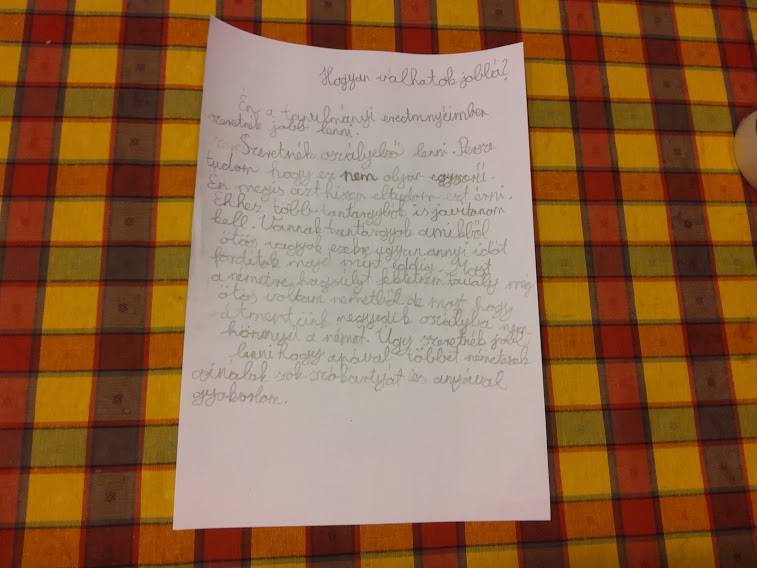 Hogyan válhatok jobbá?
Én a tanulmányi eredményeimben
szeretnék jobb lenni.
Szeretnék osztályelső lenni. Persze
tudom hogy ez nem olyan egyszerű.
Én mégis azt hiszem eltudom ezt érni.
Ehhez több tantárgyból is javítanom
kell. Vannak tantárgyak amikből
ötös vagyok ezekre ugyanannyi időt
fordítok majd mint eddig. Most
a németre hagsúlyt fektetném tavaly még
ötös voltam németből de most hogy
átmentünk negyedik osztályba nem
könnyű a német. Úgy szeretnék jobb
lenni hogy apával többet németezek
csinálok sok szókártyát és anyával
gyakorlom.